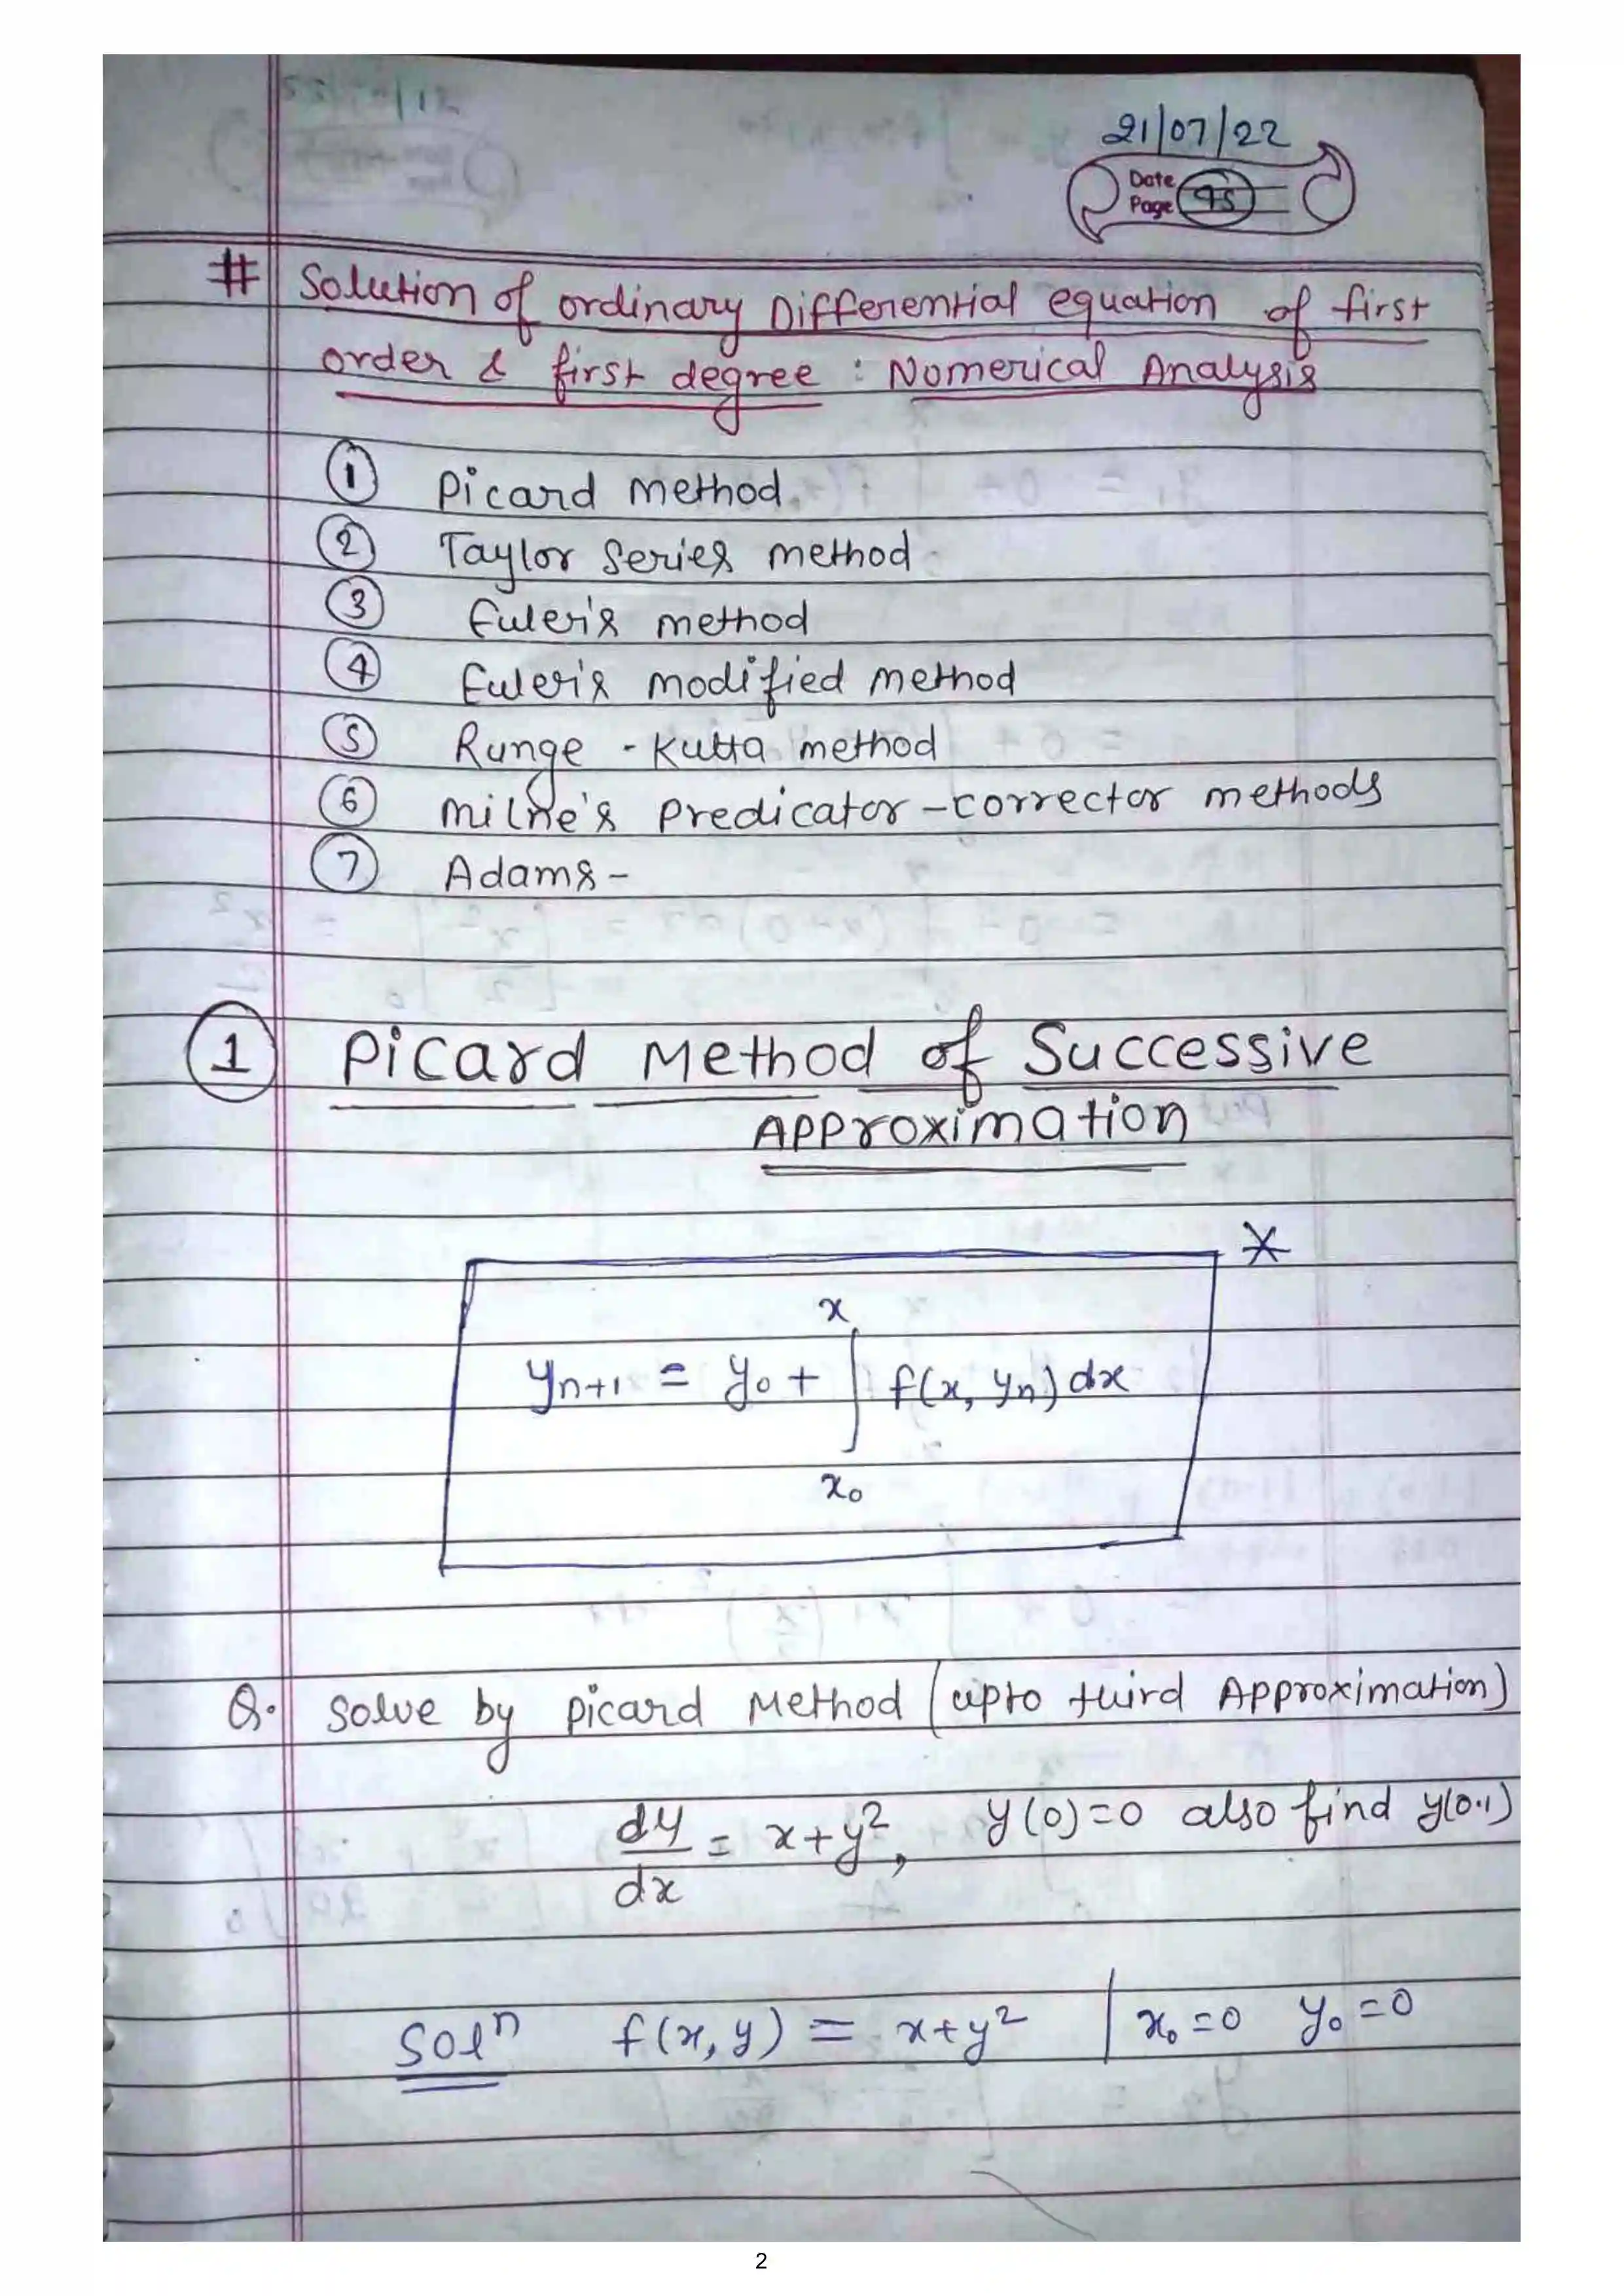 21/07/22
Date
Page 95
# Solution of ordinary Differential equation of first
order & first degree : Numerical Analysis
1 Picard method
2 Taylor Series method
3 Euler's method
4 Euler's modified method
5 Runge - Kutta method
6 Milne's Predicator - corrector methods
7 Adams -
1 Picard Method of Successive
Approximation
*
x
yₙ₊₁ = y₀ + ∫ f(x, yₙ) dx
x₀
Q. Solve by Picard Method (upto third Approximation)
dy/dx = x+y², y(0)=0 also find y(0.1)
Solⁿ f(x, y) = x+y² | x₀ =0 y₀ =0
2